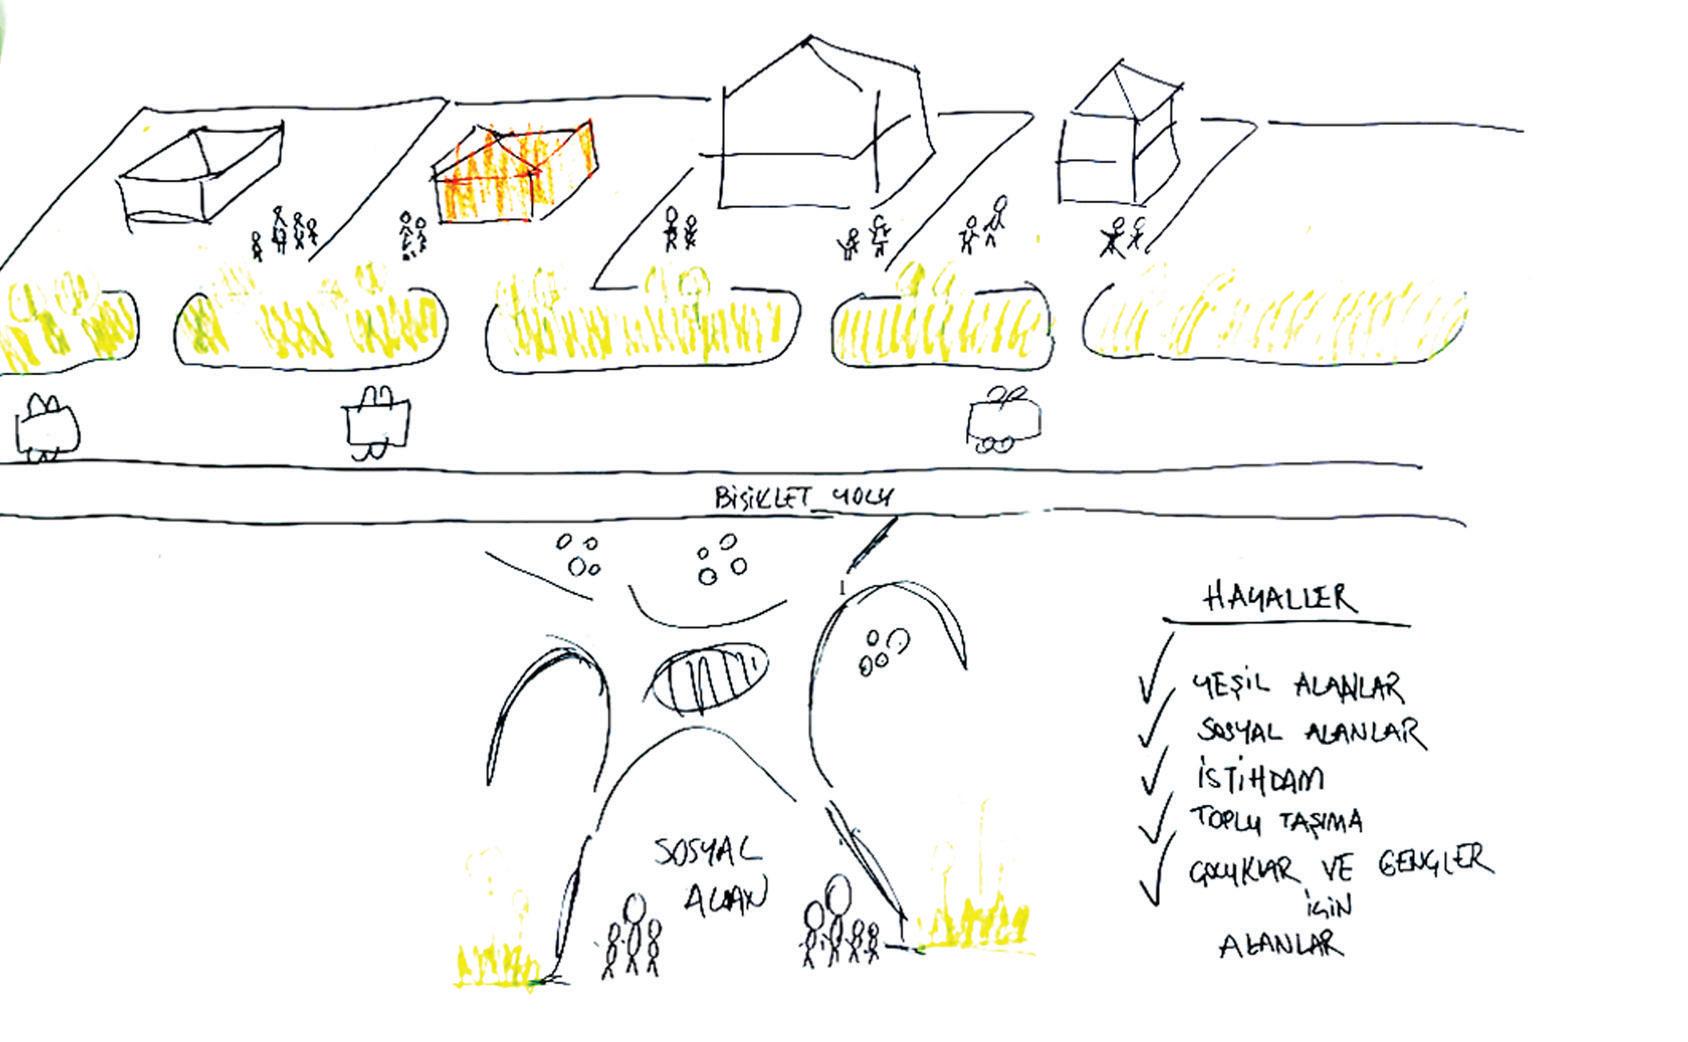 BİSİKLET YOLU
HAYALLER
YEŞİL ALANLAR
SOSYAL ALANLAR
İSTİHDAM
TOPLU TAŞIMA
ÇOCUKLAR VE GENÇLER
İÇİN
ALANLAR
SOSYAL
ALAN